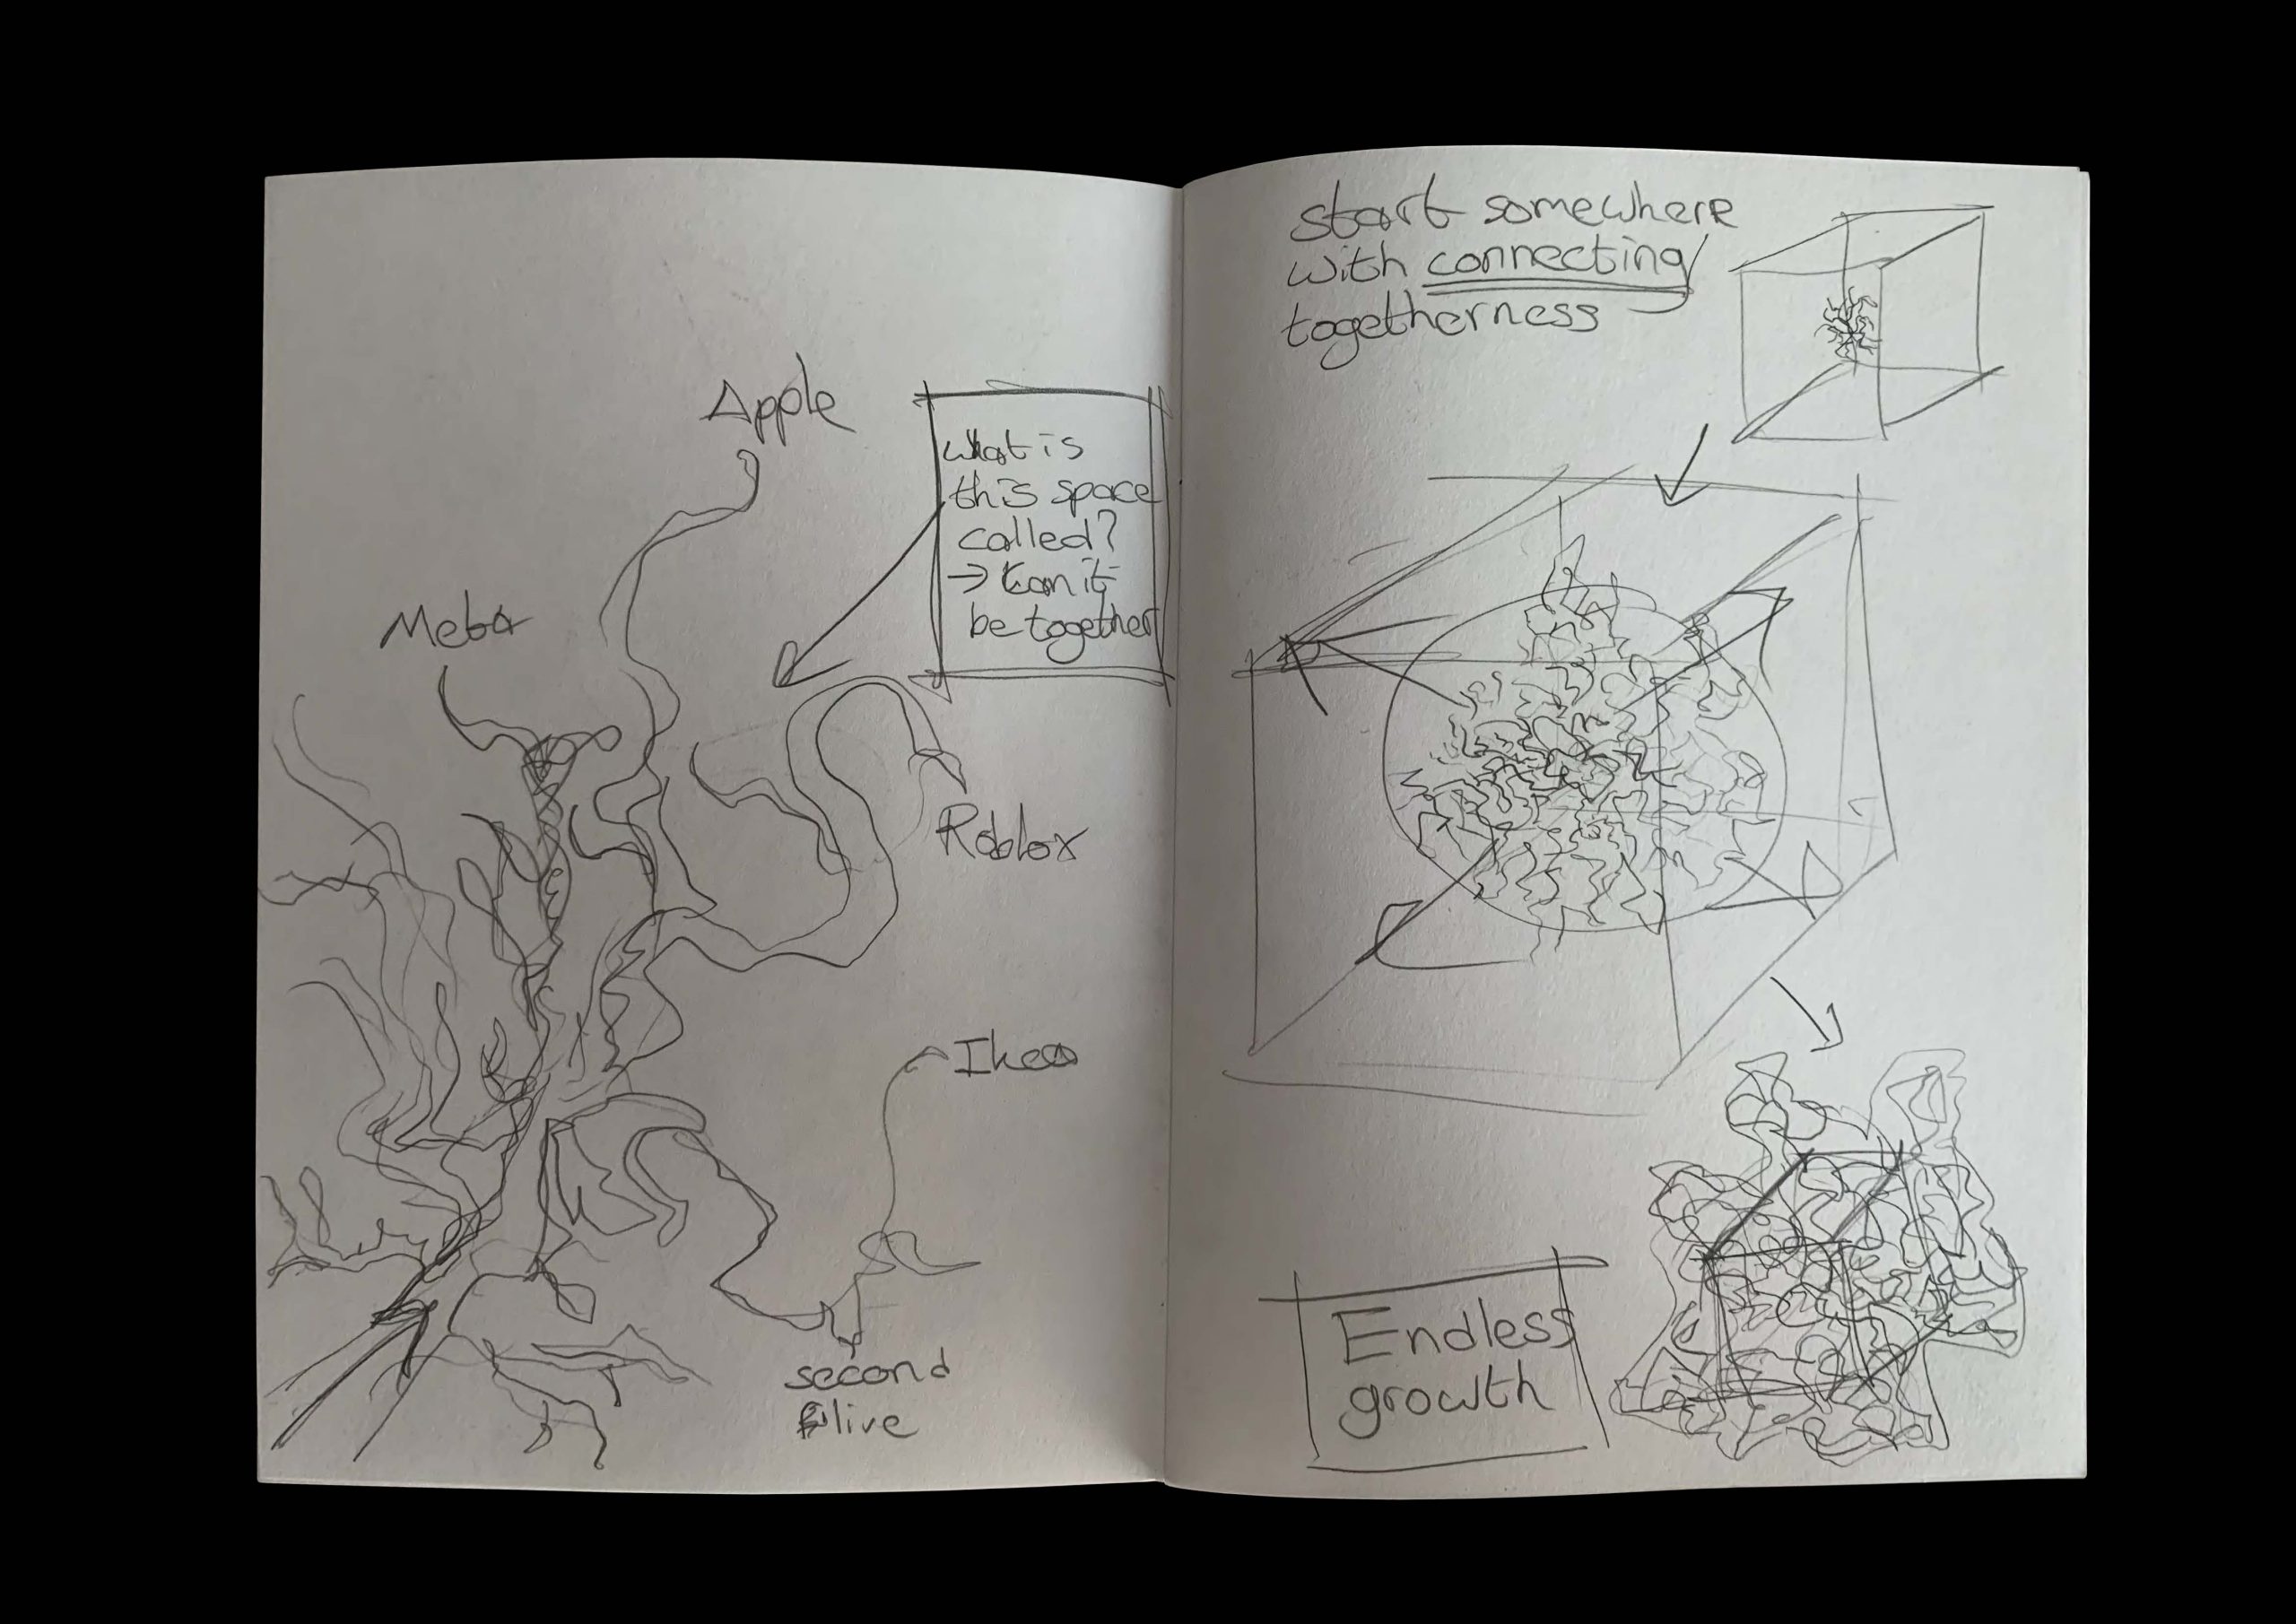 Apple
what is
this space
called?
→ Can it
be together
Meta
Roblox
Ikea
second
live
start somewhere
with connecting
togetherness
Endless
growth